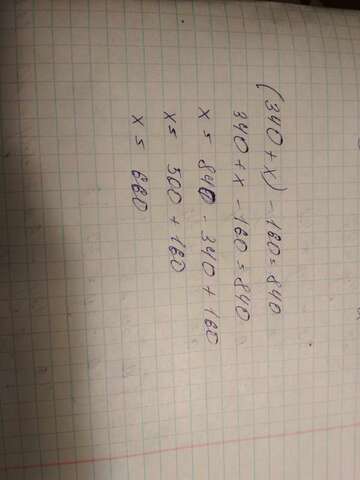 (340 + x) - 160 = 840
340 + x - 160 = 840
x = 840 - 340 + 160
x = 500 + 160
x = 660